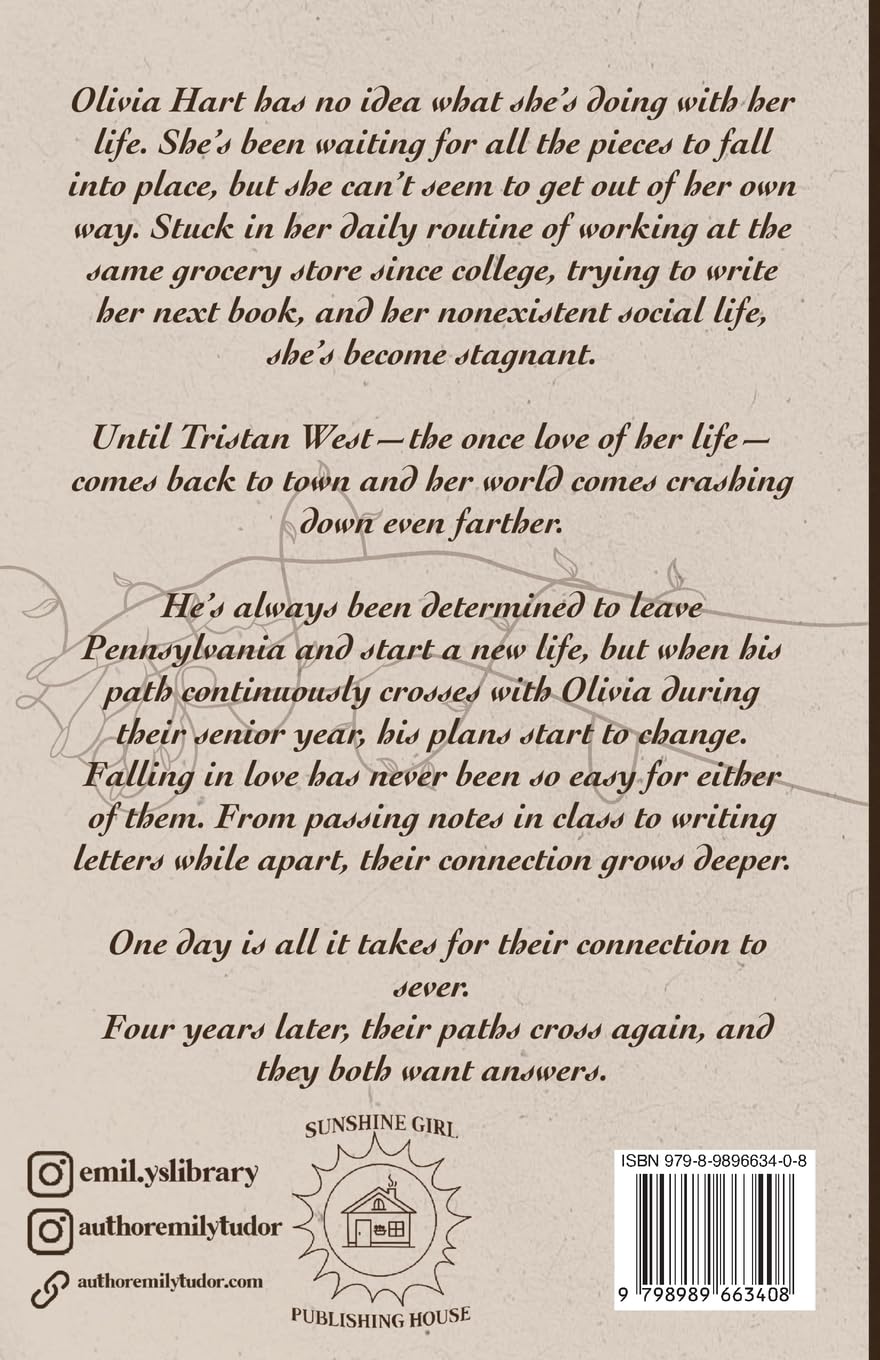 Olivia Hart has no idea what she's doing with her
life. She's been waiting for all the pieces to fall
into place, but she can't seem to get out of her own
way. Stuck in her daily routine of working at the
same grocery store since college, trying to write
her next book, and her nonexistent social life,
she's become stagnant.
Until Tristan West—the once love of her life—
comes back to town and her world comes crashing
down even farther.
He's always been determined to leave
Pennsylvania and start a new life, but when his
path continuously crosses with Olivia during
their senior year, his plans start to change.
Falling in love has never been so easy for either
of them. From passing notes in class to writing
letters while apart, their connection grows deeper.
One day is all it takes for their connection to
sever.
Four years later, their paths cross again, and
they both want answers.
emil.yslibrary
authoremilytudor
authoremilytudor.com
SUNSHINE GIRL
PUBLISHING HOUSE
ISBN 979-8-9896634-0-8
9 798989 663408